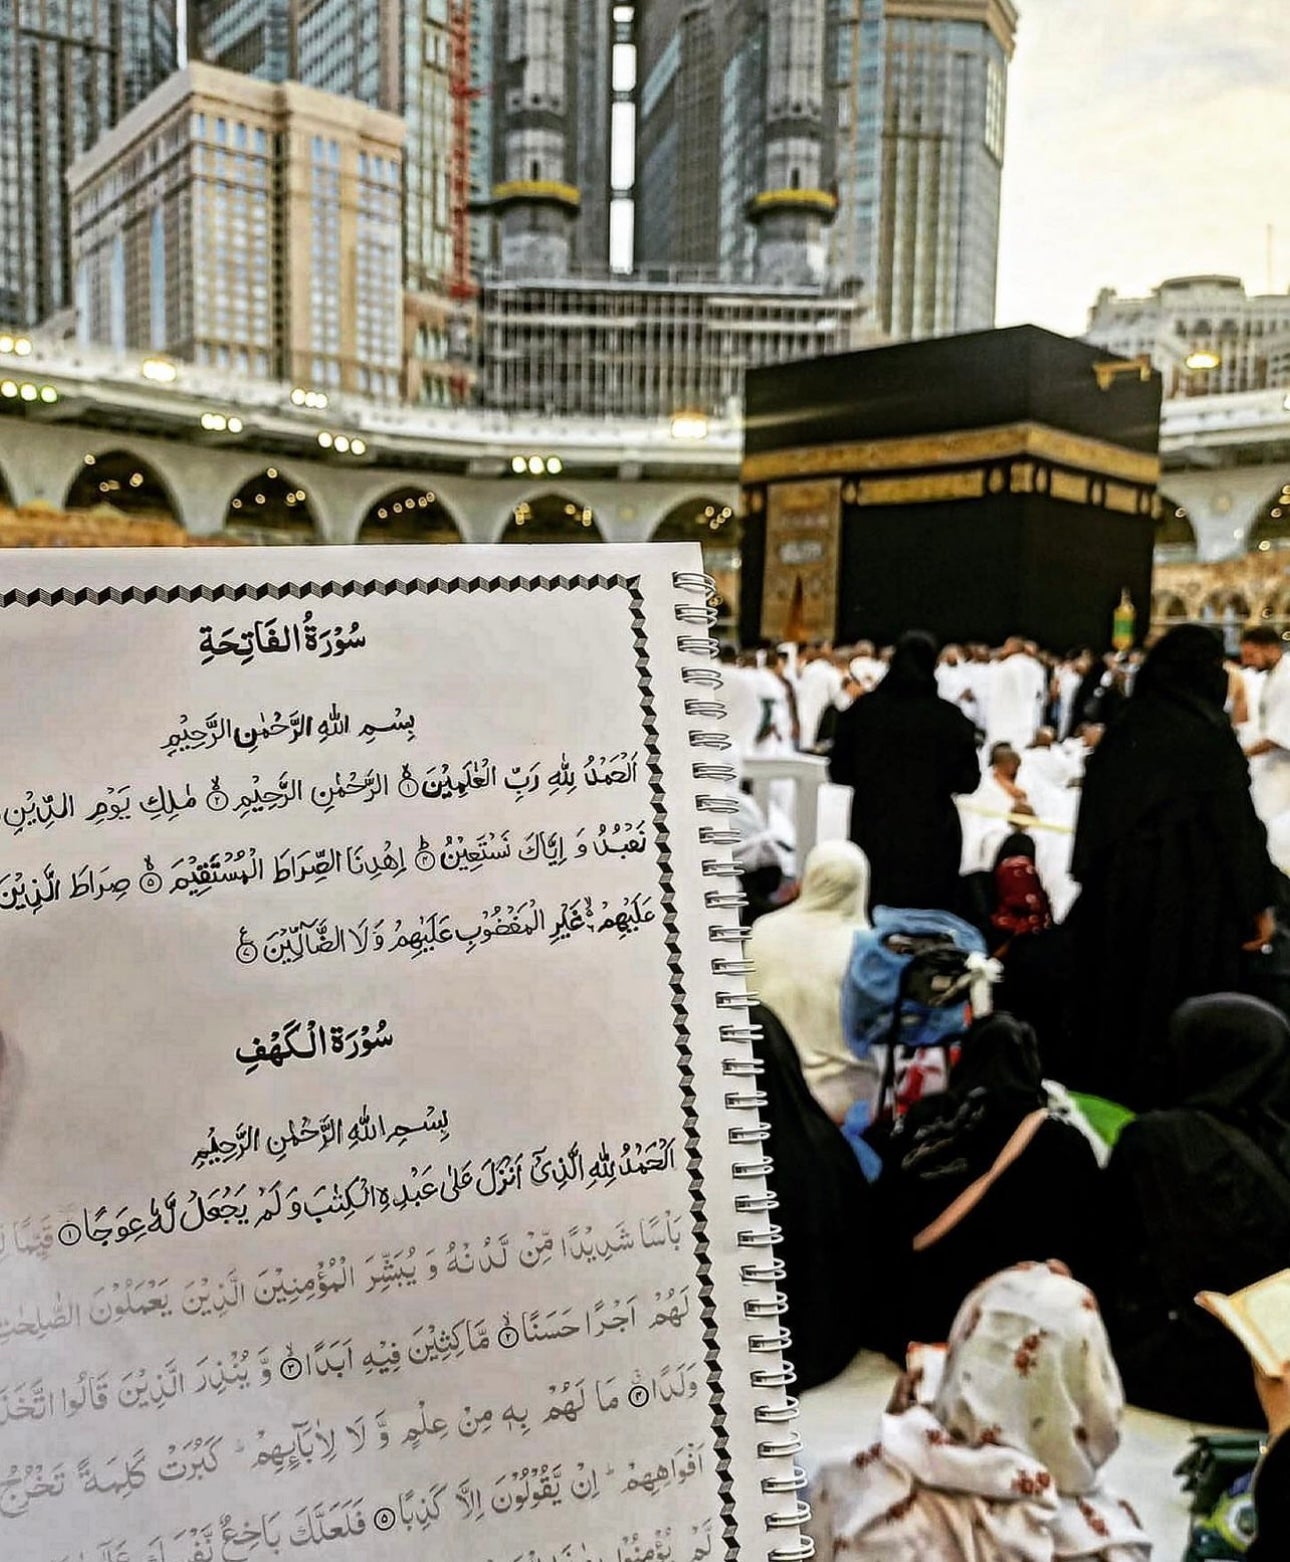 سُوْرَةُ الفَاتِحَةِ
بِسْمِ اللهِ الرَّحْمٰنِ الرَّحِيْمِ
اَلْحَمْدُ لِلّٰهِ رَبِّ الْعٰلَمِيْنَ ۝۱ الرَّحْمٰنِ الرَّحِيْمِ ۝۲ مٰلِكِ يَوْمِ الدِّيْنِ
نَعْبُدُ وَ اِيَّاكَ نَسْتَعِيْنُ ۝۴ اِهْدِنَا الصِّرَاطَ الْمُسْتَقِيْمَ ۝۵ صِرَاطَ الَّذِيْنَ
عَلَيْهِمْ ۶ غَيْرِ الْمَغْضُوْبِ عَلَيْهِمْ وَ لَا الضَّآلِّيْنَ ۝۷
سُوْرَةُ الْكَهْفِ
بِسْمِ اللهِ الرَّحْمٰنِ الرَّحِيْمِ
اَلْحَمْدُ لِلّٰهِ الَّذِىْٓ اَنْزَلَ عَلٰى عَبْدِهِ الْكِتٰبَ وَ لَمْ يَجْعَلْ لَّهٗ عِوَجًا ۝۱ قَيِّمًا
بَاْسًا شَدِيْدًا مِّنْ لَّدُنْهُ وَ يُبَشِّرَ الْمُؤْمِنِيْنَ الَّذِيْنَ يَعْمَلُوْنَ الصّٰلِحٰتِ
لَهُمْ اَجْرًا حَسَنًا ۝۲ مَّاكِثِيْنَ فِيْهِ اَبَدًا ۝۳ وَّ يُنْذِرَ الَّذِيْنَ قَالُوا اتَّخَذَ
وَلَدًا ۝۴ مَا لَهُمْ بِهٖ مِنْ عِلْمٍ وَّ لَا لِاٰبَآئِهِمْ كَبُرَتْ كَلِمَةً تَخْرُجُ
اَفْوَاهِهِمْ اِنْ يَّقُوْلُوْنَ اِلَّا كَذِبًا ۝۵ فَلَعَلَّكَ بَاخِعٌ
لَّمْ يُؤْمِنُوْا